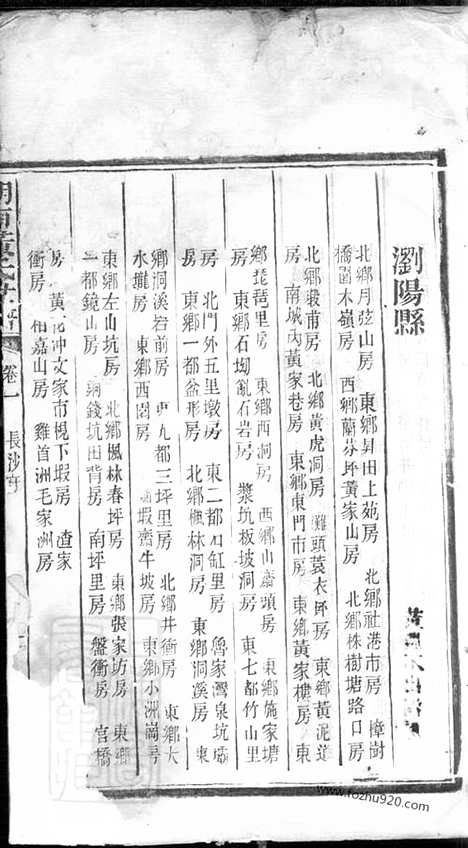 瀏陽縣
北鄉月弦山房 東鄉昇田上苑房 北鄉社港市房 樟樹
橋園木嶺房 西鄉蘭芬坪黃家山房 北鄉株樹塘路口房
北鄉毅甫房 北鄉黃虎洞房 灘頭蓑衣坪房 東鄉黃泥道
房 南城內黃家巷房 東鄉東門市房 東鄉黃家樓房 東
鄉琵琶里房 東鄉西洞房 西鄉山廟墳房 東鄉施家塘
房 東鄉石坳亂石岩房 漿坑板坡洞房 東七都竹山里
房 北門外五里墩房 東二都石缸里房 魯家灣泉坑塅
房 東鄉一都盆形房 北鄉樵林洞房 東鄉洞溪房 東
鄉洞溪岩前房 九都三坪里房 北鄉井衝房 東鄉大
水壠房 東鄉西園房 蝦齋牛坡房 東鄉小洲崗房
東鄉左山坑房 北鄉楓林春坪房 東鄉張家坊房 東鄉
一都鏡山房 銅錢坑田背房 南坪里房 盤衝房 官橋
房 黃花冲文家市棍下塅房 渣家
衝房 栢嘉山房 雞首洲毛家洲房
卷一 長沙府
www.fozhu920.com